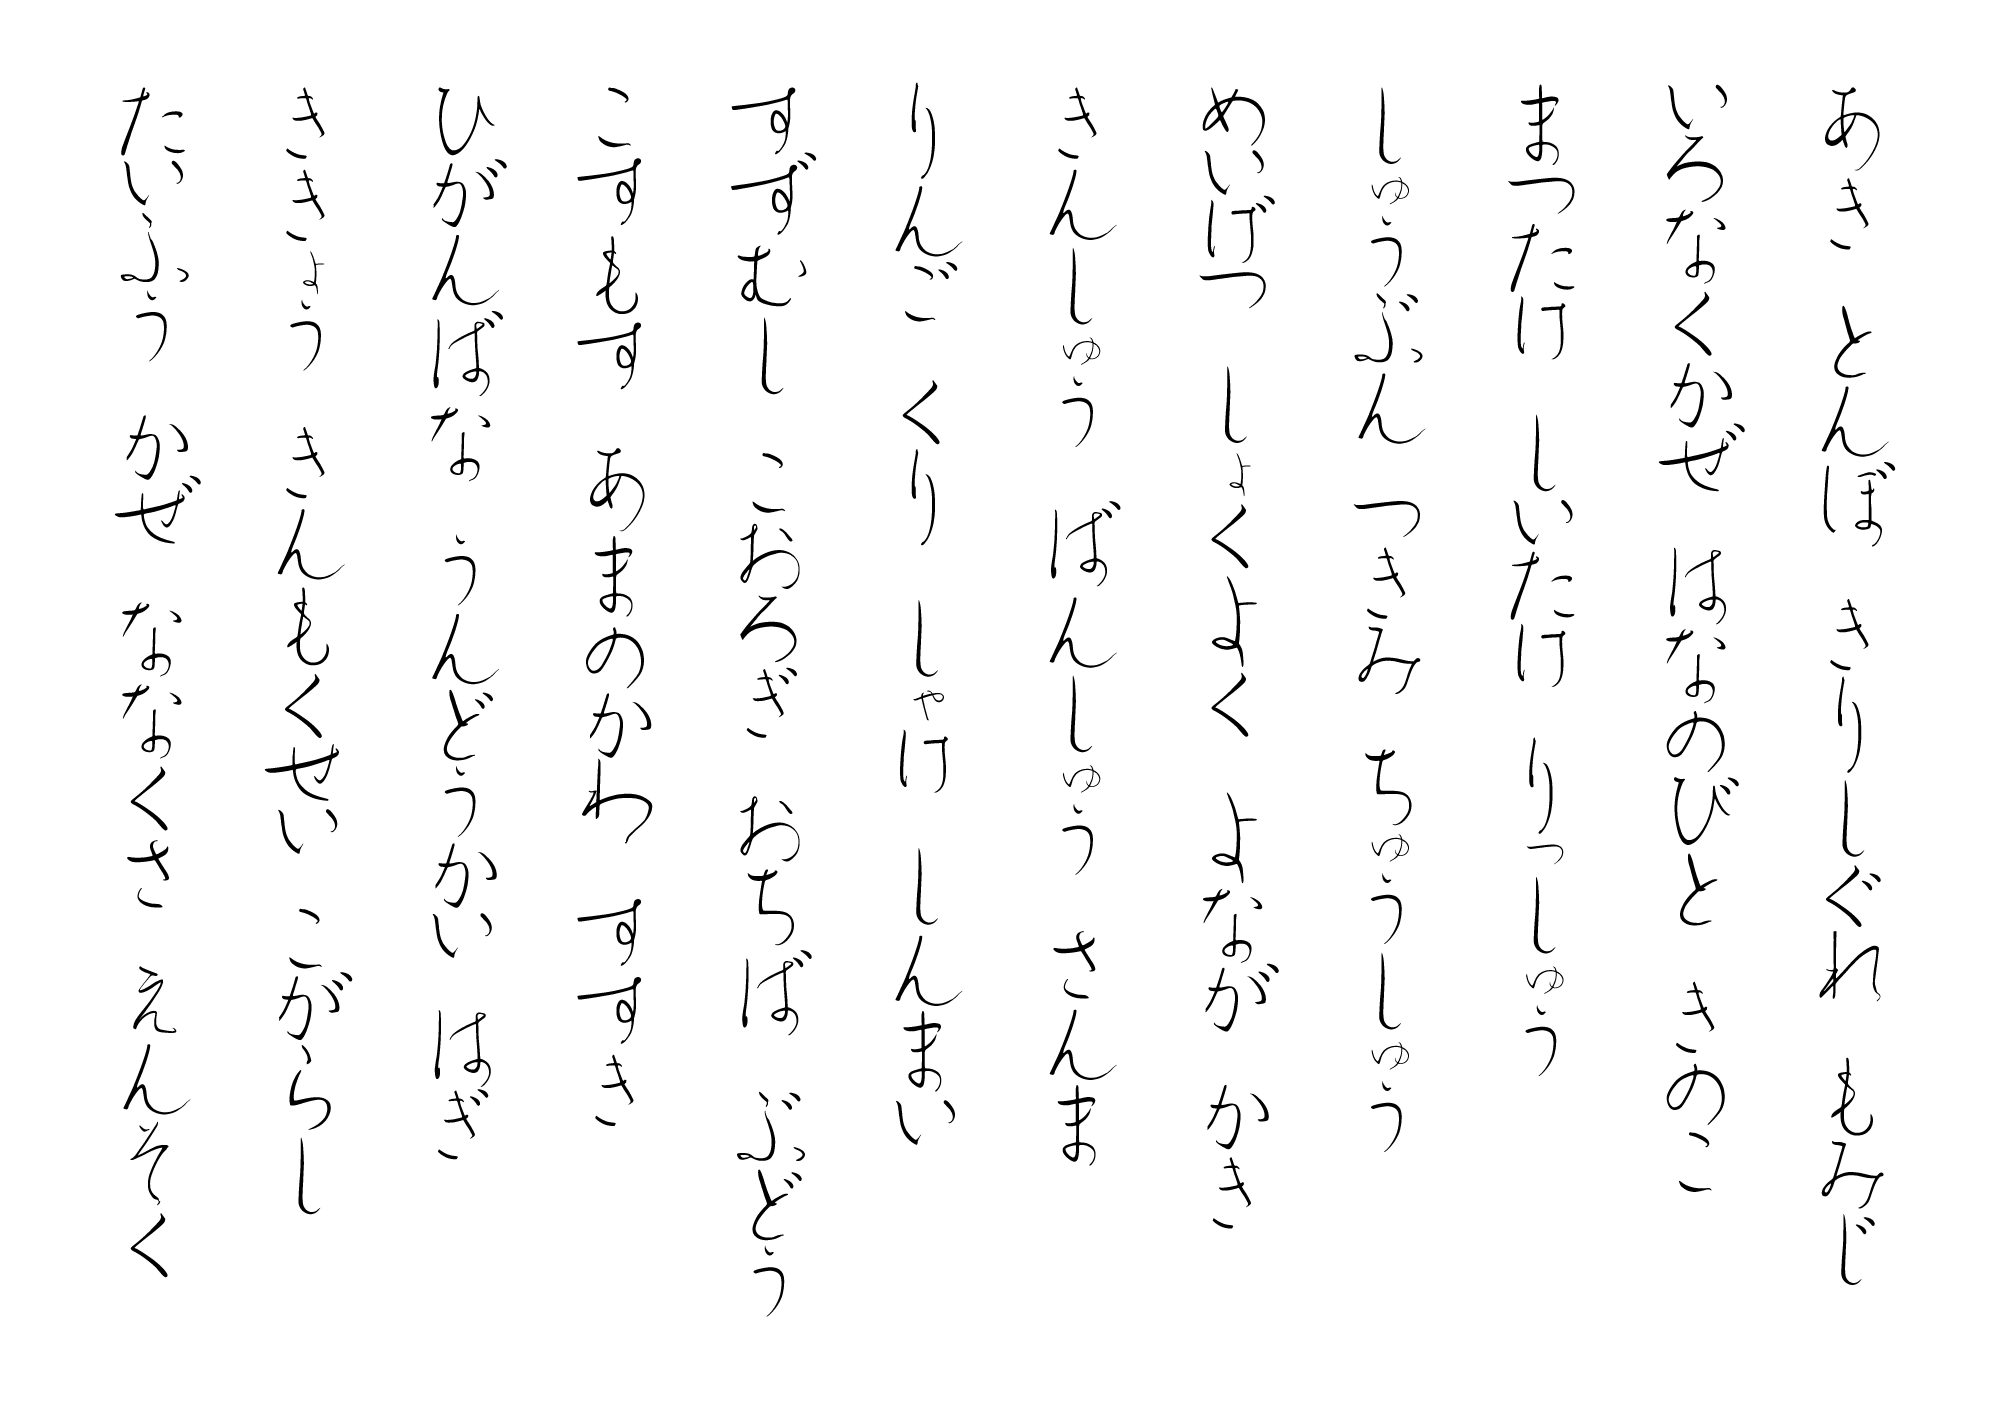 あき とんぼ きりしぐれ もみじ
いろなくかぜ はなのびと きのこ
まつたけ しいたけ りっしゅう
しゅうぶん つきみ ちゅうしゅう
めいげつ しょくよく よなが かき
きんしゅう ばんしゅう さんま
りんご くり しゃけ しんまい
すずむし こおろぎ おちば ぶどう
こすもす あまのかわ すすき
ひがんばな うんどうかい はぎ
ききょう きんもくせい こがらし
たいふう かぜ ななくさ えんそく